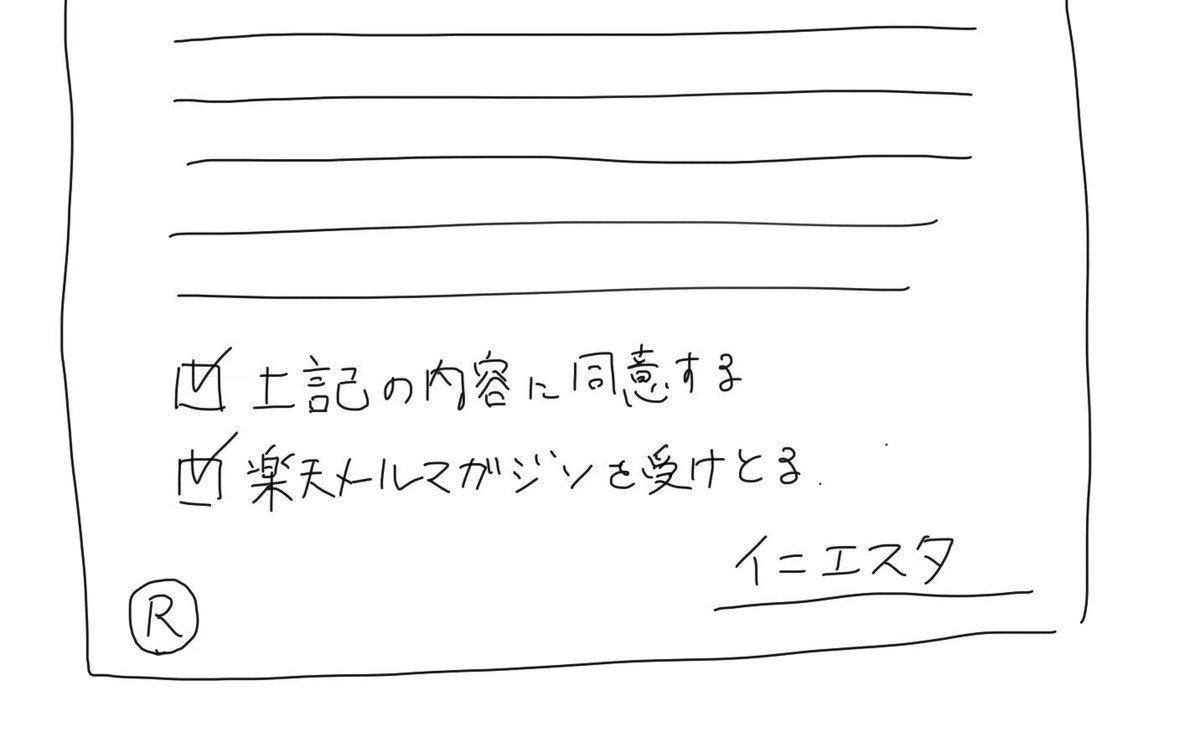 上記の内容に同意する
楽天メールマガジンを受けとる.
イニエスタ
R